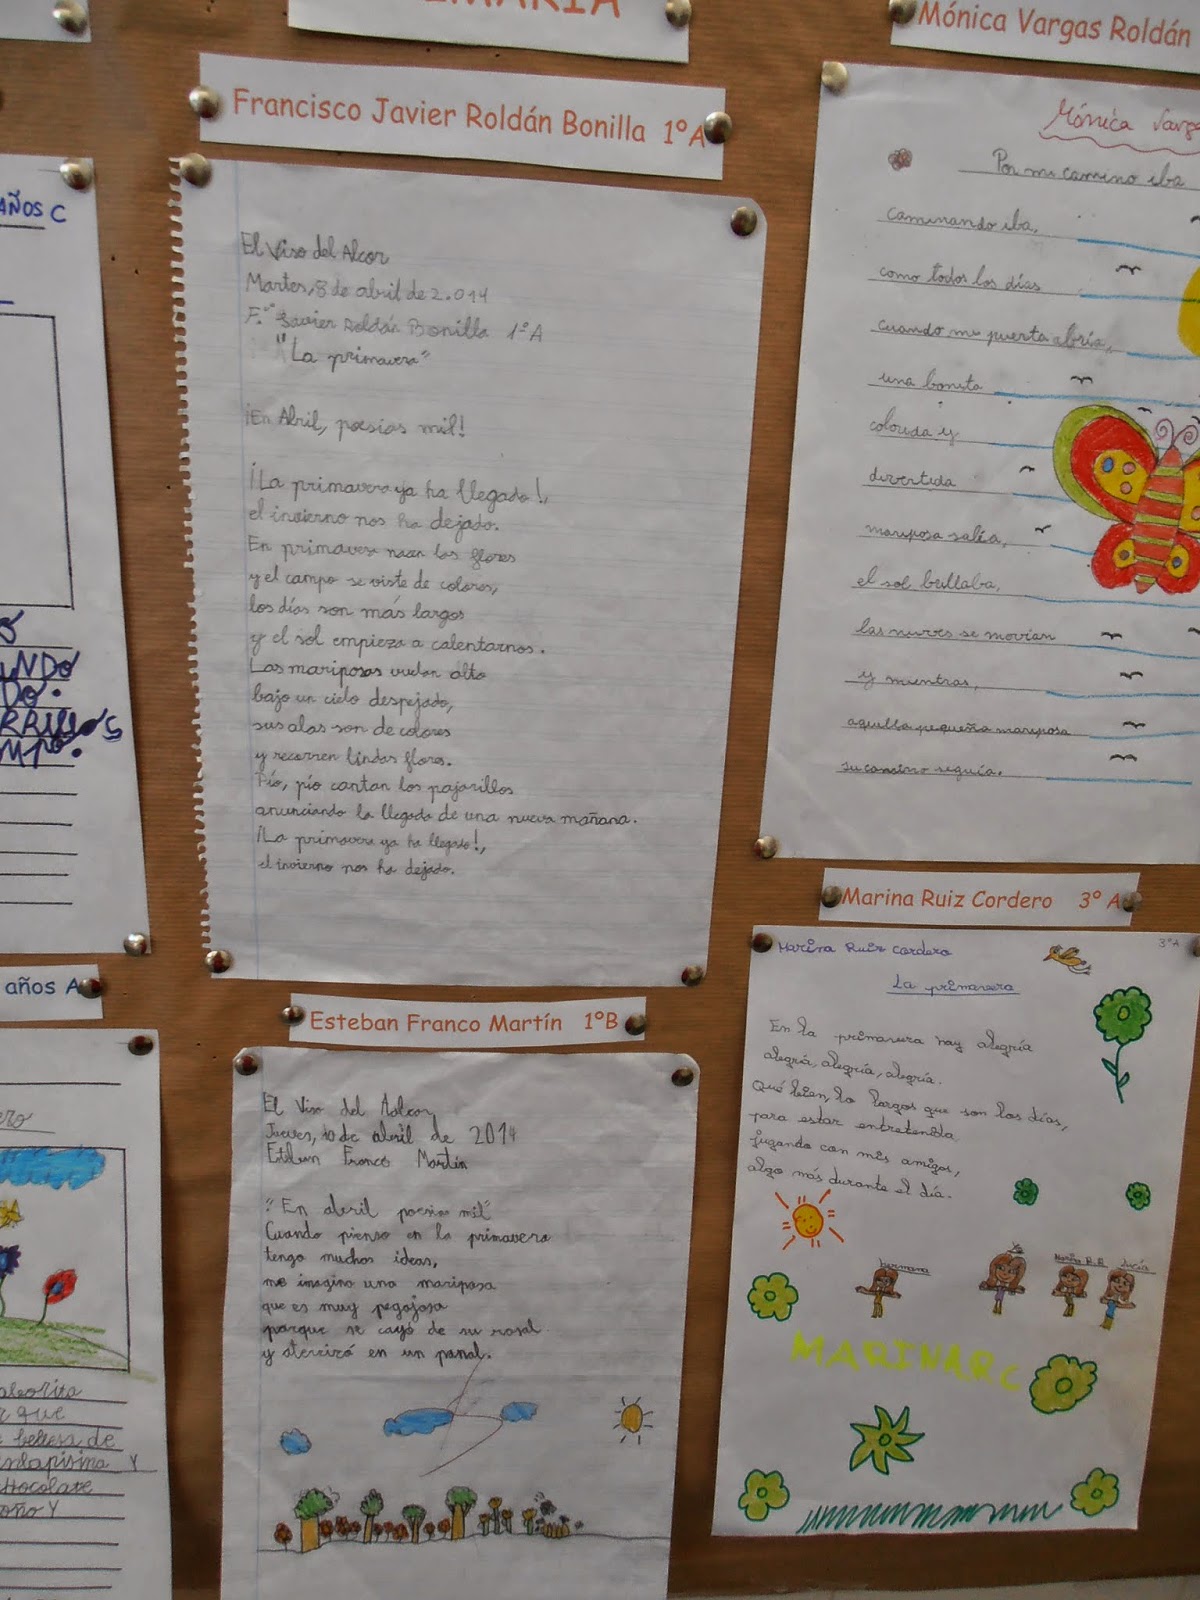 Francisco Javier Roldán Bonilla 1º A
El Viso del Alcor
Martes, 8 de abril de 2.014
F. Javier Roldán Bonilla 1º A
"La primavera"
¡En Abril, poesías mil!
¡La primavera ya ha llegado!,
el invierno nos ha dejado.
En primavera nacen las flores
y el campo se viste de colores,
los días son más largos
y el sol empieza a calentarnos.
Las mariposas vuelan alto
bajo un cielo despejado,
sus alas son de colores
y recorren lindas flores.
Pío, pío cantan los pajarillos
anunciando la llegada de una nueva mañana.
¡La primavera ya ha llegado!,
el invierno nos ha dejado.
Esteban Franco Martín 1ºB
El Viso del Aalcor
Jueves, 10 de abril de 2014
Franco Martín
"En abril poesias mil"
Cuando pienso en la primavera
tengo muchas ideas,
me imagino una mariposa
que es muy pegajosa
porque se cayó de su rosal
y aterrizó en un panal.
Mónica Vargas Roldán
Mónica
Por mi camino iba
caminando iba,
como todos los días
cuando mi puerta abría,
una bonita
colorida y
divertida
mariposa salía,
el sol brillaba,
las nuves se movían
y mientras,
aquella pequeña mariposa
su camino seguía.
Marina Ruiz Cordero 3º A
Marina Ruiz Cordero
3º A
La primavera
En la primavera hay alegría
alegría, alegría, alegría.
Qué bien, lo largos que son los días,
para estar entretenida
jugando con mis amigos,
algo más durante el día.
hermana
Yo
Lucía
MARINA R C
AÑOS C
años A